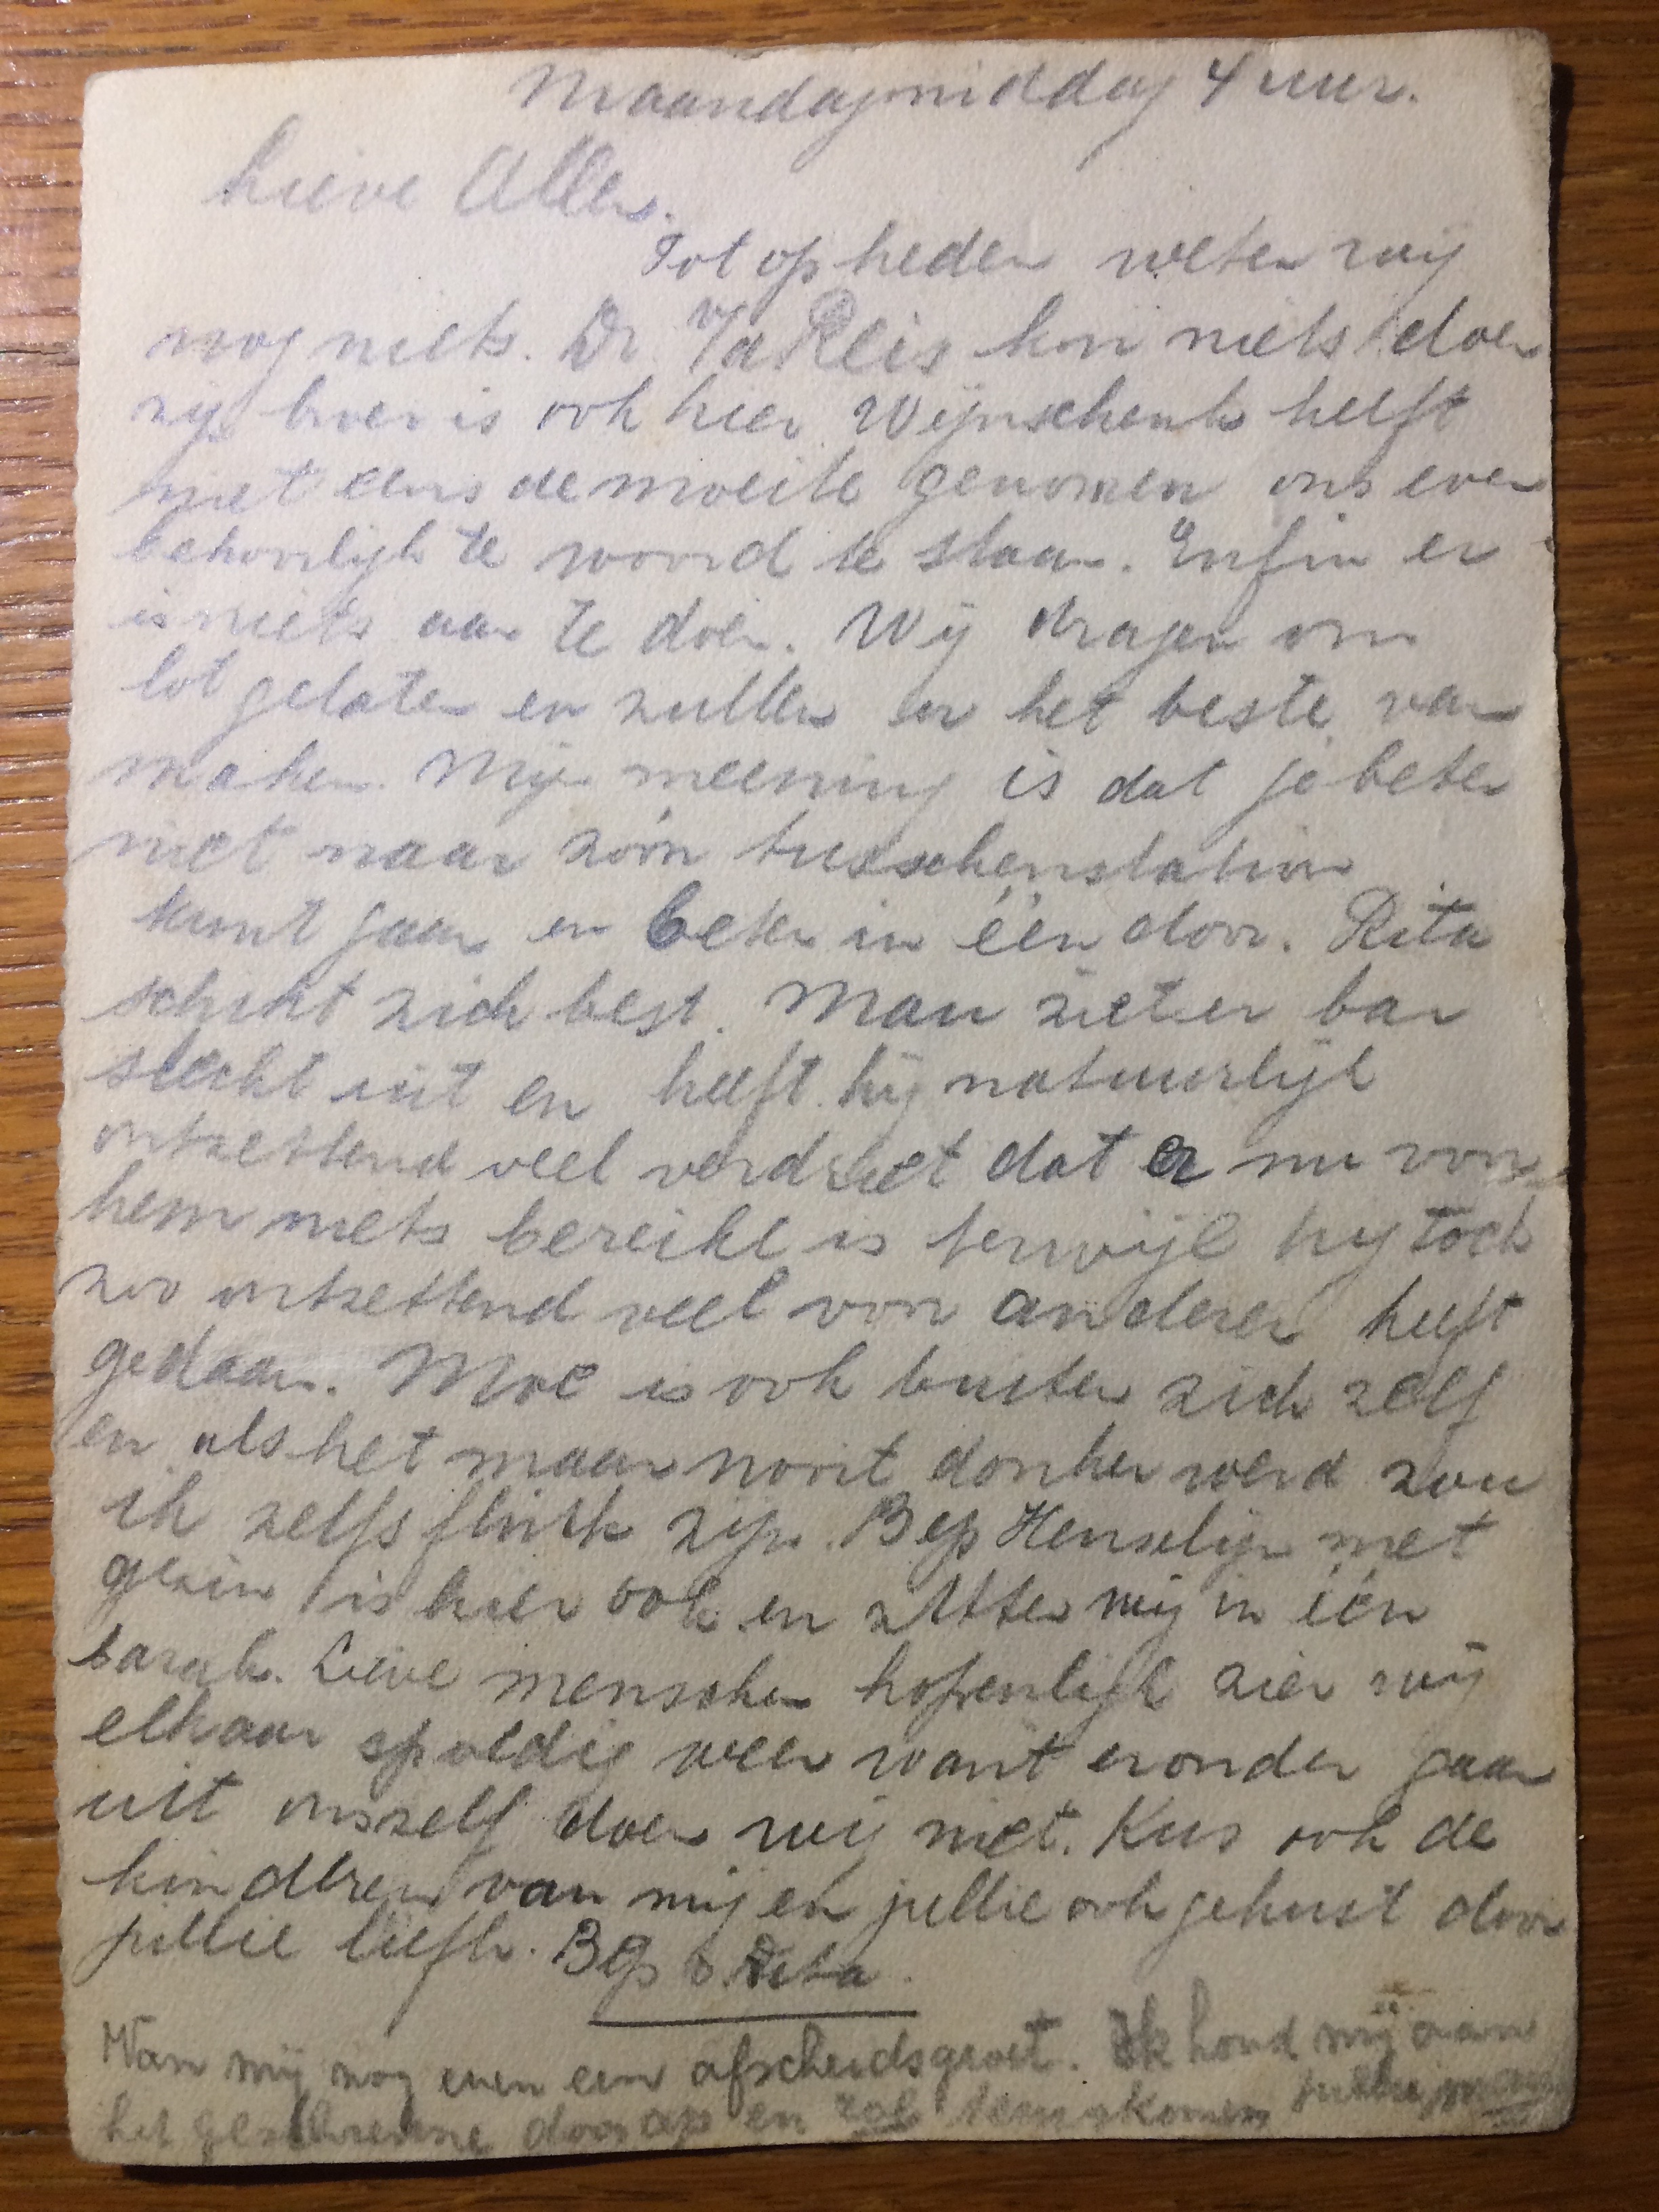 Maandagmiddag 4 uur.
Lieve Allen.
Tot op heden weten wij
nog niets. Dr. Reis kon niets doen
zijn broer is ook hier. Wijnschenk heeft
niet eens de moeite genomen ons even
behoorlijk te woord te staan. Enfin er
is niets aan te doen. Wij dragen ons
lot gelaten en zullen er het beste van
maken. Mijn meening is dat je beter
niet naar zoo'n tusschenstation
kunt gaan en beter in één door. Rita
schikt zich best. Man ziet er bar
slecht uit en heeft hij natuurlijk
ontzettend veel verdriet dat er nu voor
hem niets bereikt is terwijl hij toch
zoo ontzettend veel voor anderen heeft
gedaan. Moe is ook buiten zich zelf
en als het maar nooit donker werd zou
ik zelfs flink zijn. Bep Henselijn met
gezin is hier ook en zitten wij in één
barak. Lieve menschen hopenlijk zien wij
elkaar spoedig weer want eronder gaan
uit onszelf doen wij niet. Kus ook de
kinderen van mij en jullie ook gekust door
jullie liefh. Bep & Rita.
Van mij nog even een afscheidsgroet. Ik houd mij aan
het geschrevene door en zal terugkomen jullie